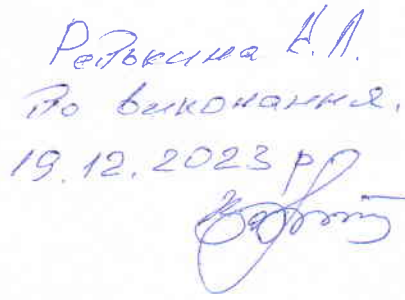 Редькина Н.Л.
До виконання.
19.12.2023 р